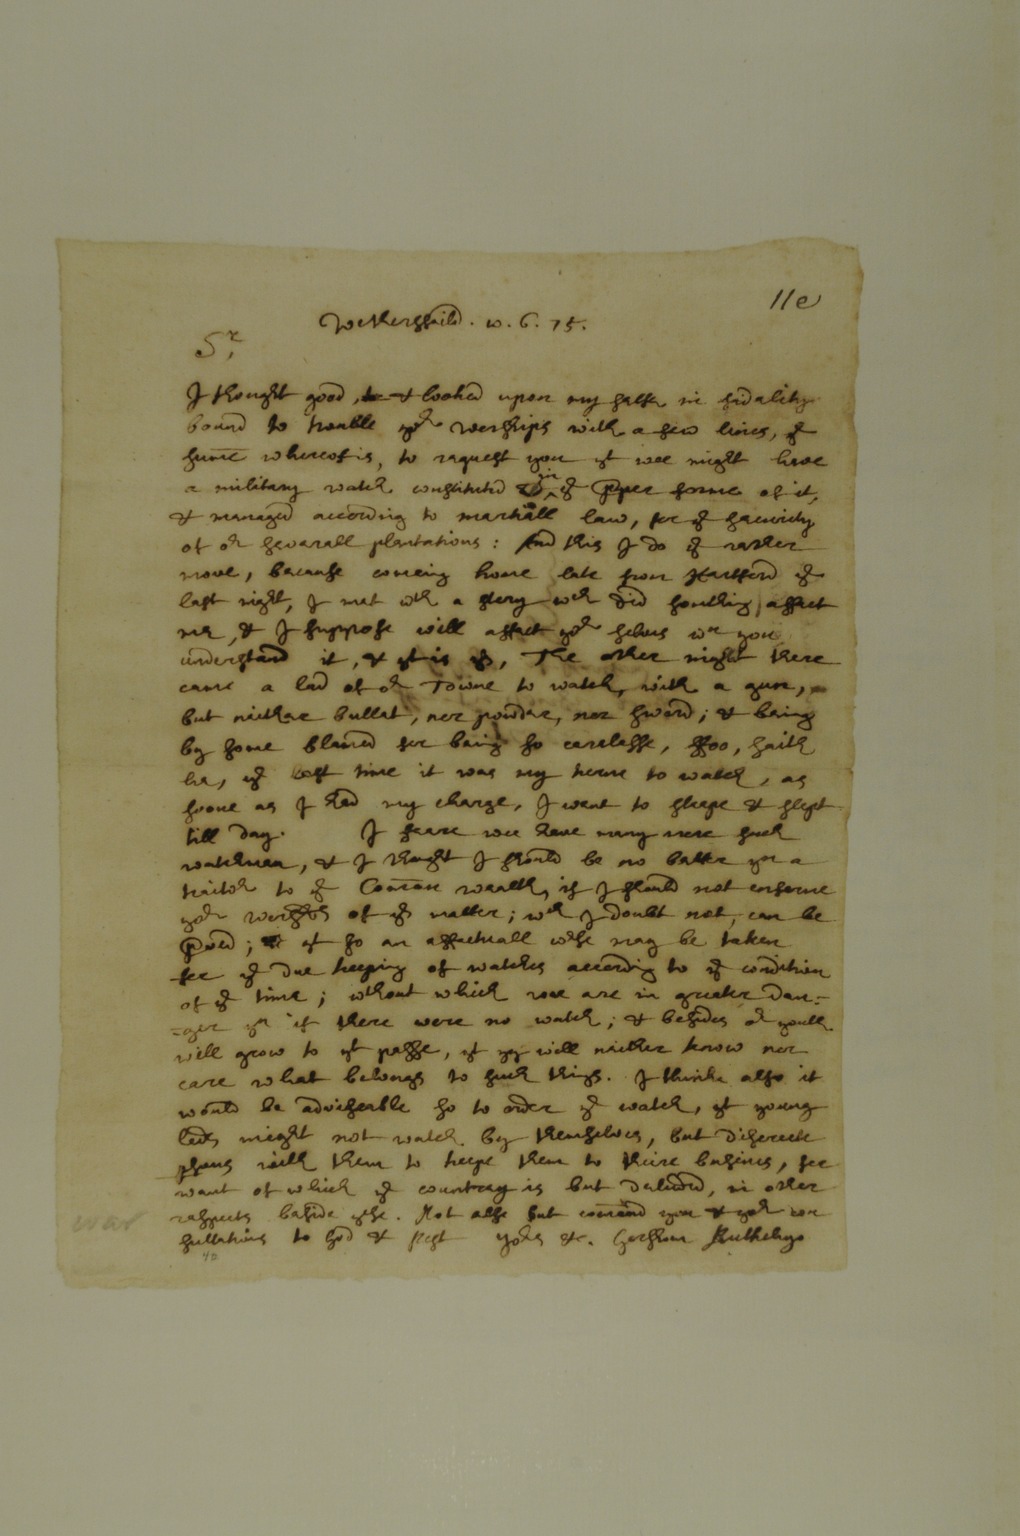 11e
Wethersfeild . 10 . 6 . 75 .
Sr,
I thought good, & looked upon my selfe in fidality
bound to trouble yor worships with a few lines, ye
sume whereof is, to request you yt wee might have
a military watch constituted in ye pper forme of it,
& managed according to marshall law, for ye security
of or severall plantations : And this I do ye rather
move, because comeing home late from Hartford ye
last night, I met wth a story wch did somthing affect
me, & I suppose will affect yor selves wn you
understand it, & yt is ys, The other night there
came a lad of or Towne to watch, with a gun,
but neither bullet, nor powder, nor sword ; & being
by some blamed for being so carelesse, ffoo, saith
he, ye last time it was my turne to watch, as
soone as I had my charge, I went to sleepe & slept
till day. I feare wee have many more such
watchmen, & I thought I should be no better yn a
traitor to ye Comon wealth, if I should not enforme
yor worshps of ys matter ; wch I doubt not, can be
proved ; yt so an effectuall course may be taken
for ye due keeping of watches according to ye condition
of ye time ; without which wee are in greater dan=
=ger yn if there were no watch ; & besides or youth
will grow to yt passe, yt yy will neither know nor
care what belongs to such things. I thinke also it
would be adviseable so to order ye watch, yt young
lads might not watch by themselves, but discreete
psons with them to keepe them to theire busines, for
want of which ye country is but deluded, in other
respects beside yse. Not else but comend you & yor con
sultations to God & rest yors &c. Gershom Bulkeley
war
42